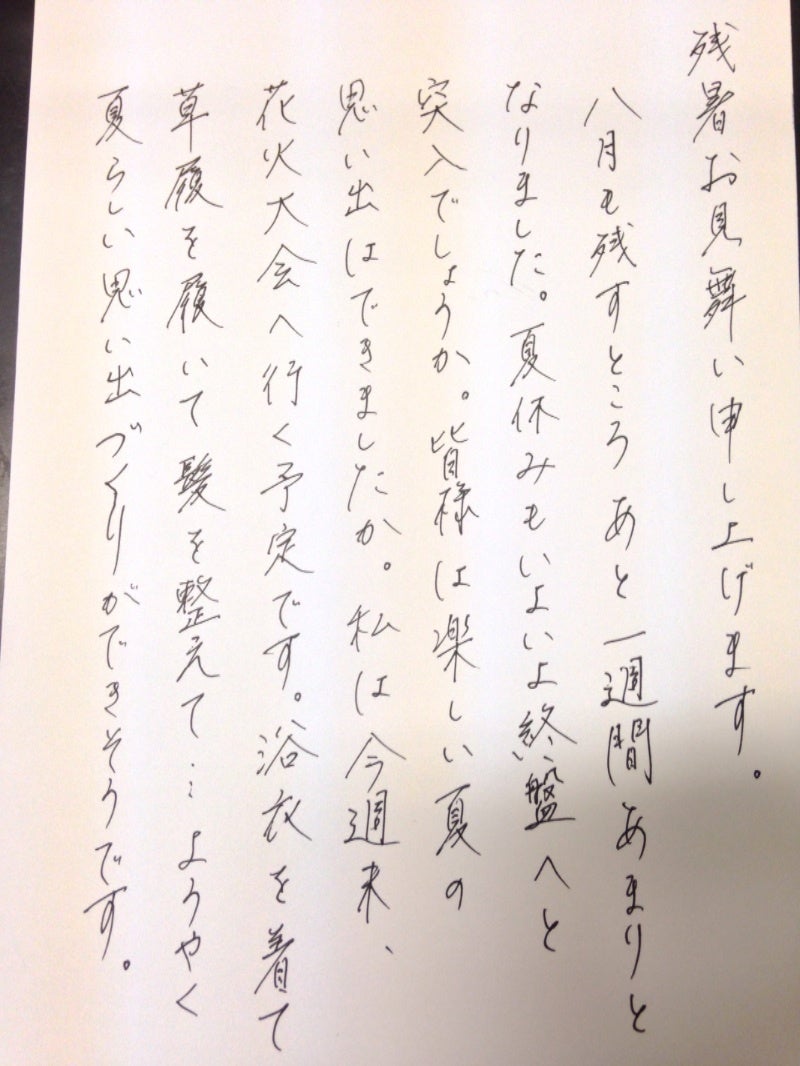 残暑お見舞い申し上げます。
八月も残すところあと一週間あまりと
なりました。夏休みもいよいよ終盤へと
突入でしょうか。皆様は楽しい夏の
思い出はできましたか。私は今週末、
花火大会へ行く予定です。浴衣を着て
草履を履いて髪を整えて…ようやく
夏らしい思い出づくりができそうです。